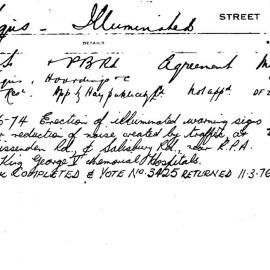 Illuminated STREET
DETAILS
PBRd Agreement
Hoardings &c
App by Hay publicity not app'd of 2
-74 Erection of illuminated warning signs
reduction of noise created by traffic, at
issenden Rd, & Salisbury Rd, near R.P.A.
King George V Memorial Hospitals.
COMPLETED & VOTE NO. 3425 RETURNED 11-3-76